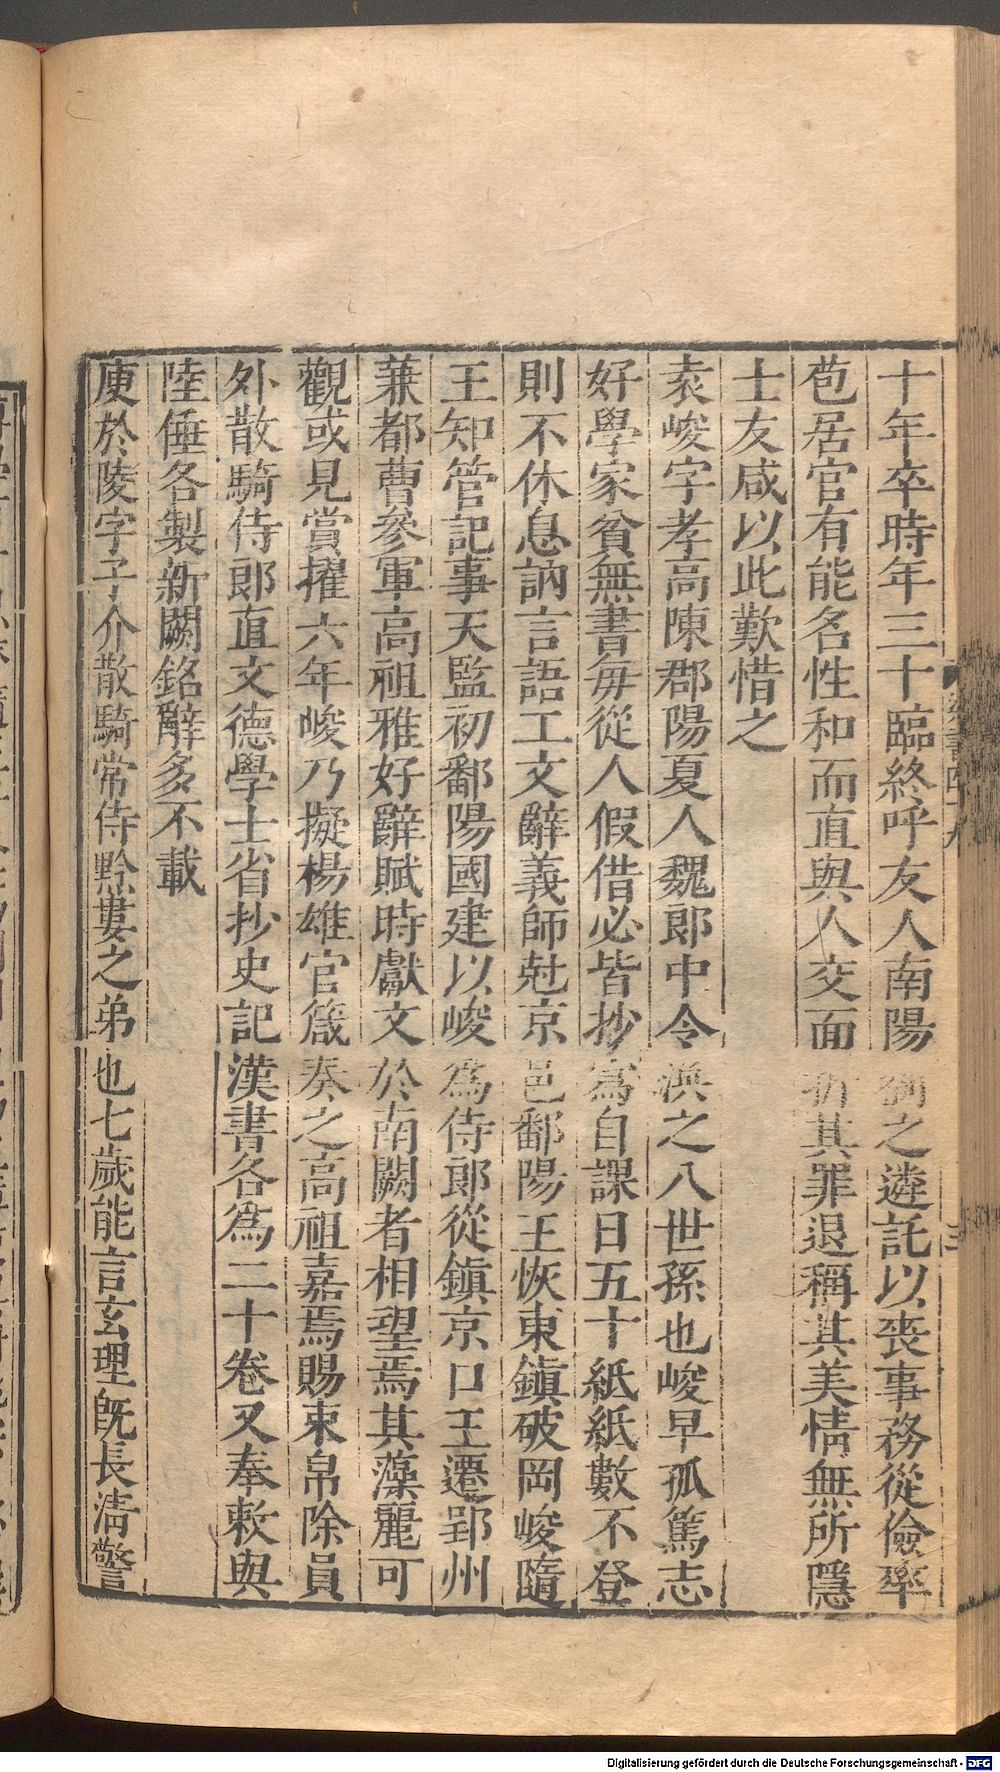 十年卒時年三十臨終呼友人南陽劉之遴託以喪事務從儉率
苞居官有能名性和而直與人交面折其罪退稱其美情無所隱
士友咸以此歎惜之
袁峻字孝高陳郡陽夏人魏郎中令渙之八世孫也峻早孤篤志
好學家貧無書每從人假借必皆抄寫自課日五十紙紙數不登
則不休息訥言語工文辭義師尅京邑鄱陽王恢東鎮破岡峻隨
王知管記事天監初鄱陽國建以峻爲侍郎從鎮京口王遷郢州
兼都曹參軍高祖雅好辭賦時獻文於南闕者相望焉其藻麗可
觀或見賞擢六年峻乃擬楊雄官箴奏之高祖嘉焉賜束帛除員
外散騎侍郎直文德學士省抄史記漢書各爲二十卷又奉敕與
陸倕各製新闕銘辭多不載
庾於陵字子介散騎常侍黔婁之弟也七歲能言玄理旣長清警
Digitalisierung gefördert durch die Deutsche Forschungsgemeinschaft - DFG